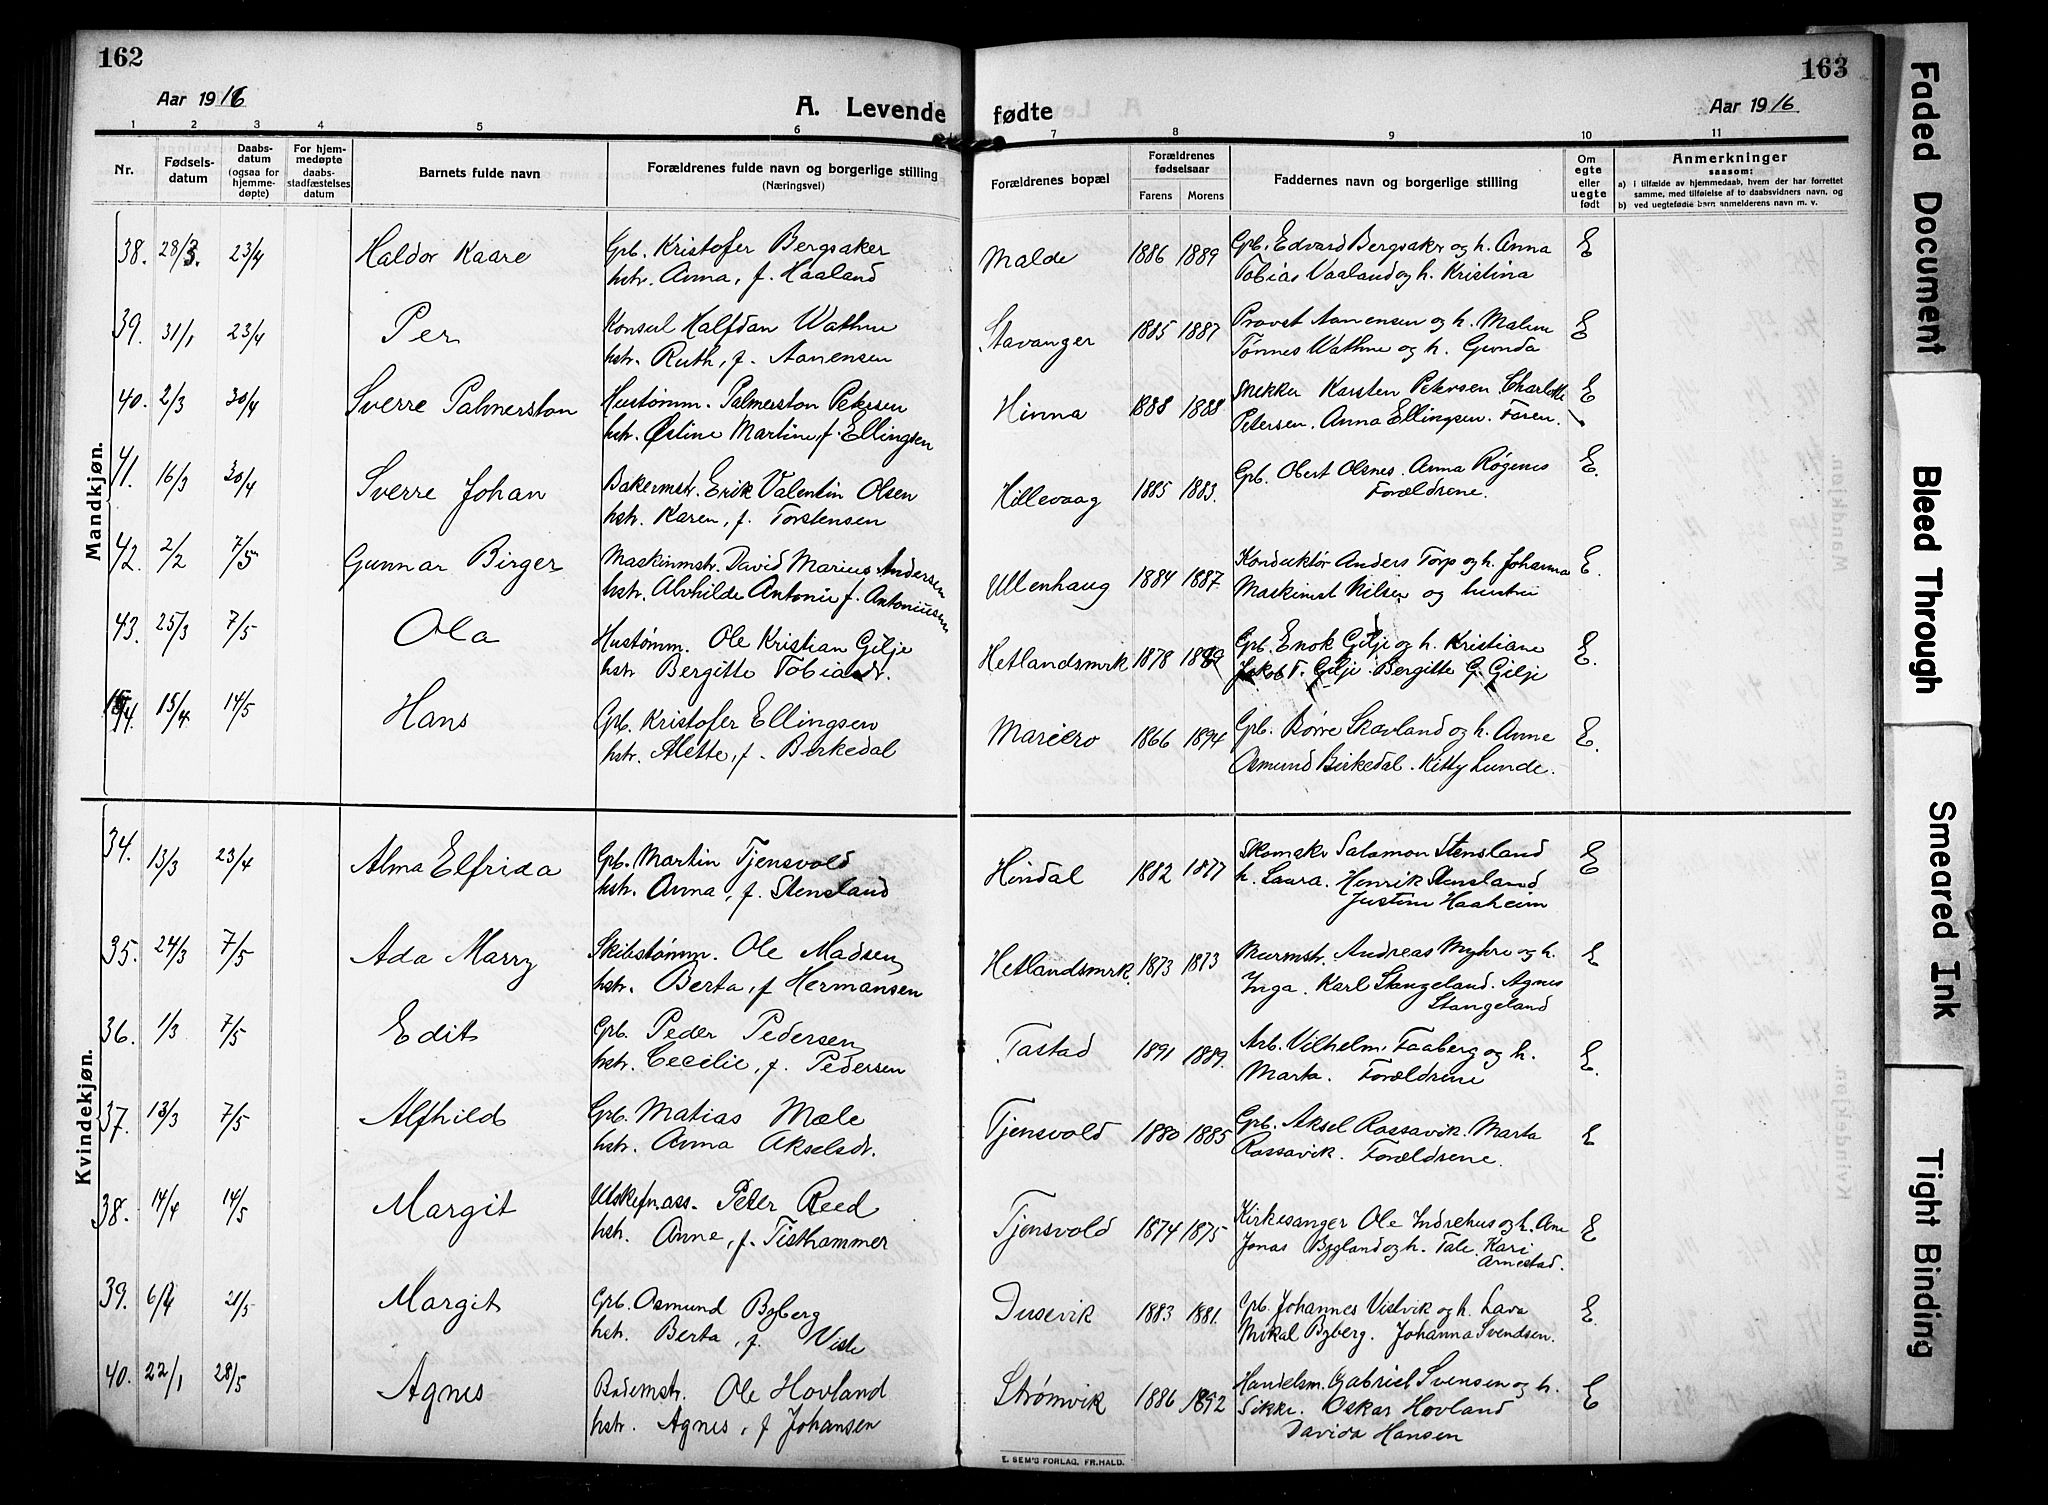 162
Aar 1916
A. Levende
1 2 3 4 5 6
Nr. Fødsels-datum Daabs-datum (ogsaa for hjemme-døpte) For hjem-medøpte daabs-stadfæstelses datum Barnets fulde navn Forældrenes fulde navn og borgerlige stilling (Næringsvei)
Mandkjøn.
38. 28/3. 23/4 Haldor Kaare Grb. Kristofer Bergsaker
hstr. Anna, f. Haaland
39. 31/1 23/4 Per Konsul Halfdan Wathne
hstr. Ruth, f. Aanensen
40. 2/3 30/4 Sverre Palmerston Hustømm. Palmerston Petersen
hstr. Østine Martine, f. Ellingsen
41. 16/3 30/4 Sverre Johan Bakermstr. Erik Valentin Olsen
hstr. Karen, f. Torstensen
42. 2/2 7/5 Gunnar Birger Maskinmstr. David Marius Andersen
hstr. Alvhilde Antonie f. Antoniussen
43. 25/3 7/5 Ola Hustømm. Ole Kristian Gilje
hstr. Bergitte Tobiasdr.
44. 15/4 14/5 Hans Grb. Kristofer Ellingsen
hstr. Alette, f. Birkedal
Kvindekjøn.
34. 13/3 23/4 Alma Elfrida Grb. Martin Tjensvold
hstr. Anna, f. Stensland
35. 24/3 7/5 Ada Marry Skibstømm. Ole Madsen
hstr. Berta, f Hermansen
36. 1/3 7/5 Edit Grb. Peder Pedersen
hstr. Cecilie, f. Pedersen
37. 13/3 7/5 Alfhild Grb. Matias Mæle
hstr. Anna Akselsdr.
38. 14/4 14/5 Margit Utskifn.ass. Peter Reed
hstr. Anne, f. Tisthammer
39. 6/4 21/5 Margit Grb. Osmund Byberg
hstr. Berta, f. Viste
40. 22/1 28/5 Agnes Bademstr. Ole Hovland
hstr. Agnes, f Johansen
163
Aar 1916
fødte
7 8 9 10 11
Forældrenes bopæl Forældrenes fødselsaar Farens Morens Faddernes navn og borgerlige stilling Om egte eller uegte født Anmerkninger
saasom:
a) i tilfælde av hjemmedaab, hvem der har forrettet
samme, med tilføielse af to daabsvidners navn, og
b) ved uegtefødte barn anmelderens navn m. v.
Malde 1886 1889 Grb. Edvard Bergsaker og h. Anna E
Tobias Vaaland og h. Kristina
Stavanger 1885 1887 Provst Aanensen og h. Malene E
Tønnes Wathne og h. Gunda
Hinna 1888 1888 Snekker Karsten Petersen Charlotte E
Petersen. Anna Ellingsen. Faren.
Hillevaag 1885 1883. Grb. Obert Olsnes. Anna Røgenes E.
Forældrene.
Ullenhaug 1884 1887. Konduktør Anders Torp og h. Johanna E.
Maskinmst Nilsen og hustru
Hetlandsmrk 1878 Grb. Enok Gilje og h. Kristiane E.
Jakob T. Gilje. Bergitte G. Gilje
Mariero 1866 1894 Grb. Børre Skavland og h. Anne E.
Osmund Birkedal. Kitty Lunde.
Hindal 1882 1877 Skomaker Salomon Stensland E
h. Laura. Henrik Stensland
Justine Haaheim
Hetlandsmrk. 1873 1873 Murmstr. Andreas Myhre og h. E
Inga. Karl Stangeland. Agnes
Stangeland
Tastad 1891 1889. Arb. Vilhelm Faaberg og h. E.
Marta. Forældrene
Tjensvold 1880 1885 Grb. Aksel Rossavik. Marta E
Rossavik. Forældrene.
Tjensvold 1874 1875 Kirkesanger Ole Indrehus og h. Ane E
Jonas Bygland og h. Tale. Kari
Arnestad.
Dusevik 1883 1881. Grb. Johannes Vistvik og h. Lava E.
Mikal Byberg. Johanna Svendsen.
Strømvik 1886 1892 Handelsm. Gabriel Svensen og h. E
Sikke. Oskar Hovland
Davida Hansen
E. SEM'S FORLAG, FR.HALD.
Faded Document
Bleed Through
Smeared Ink
Tight Binding